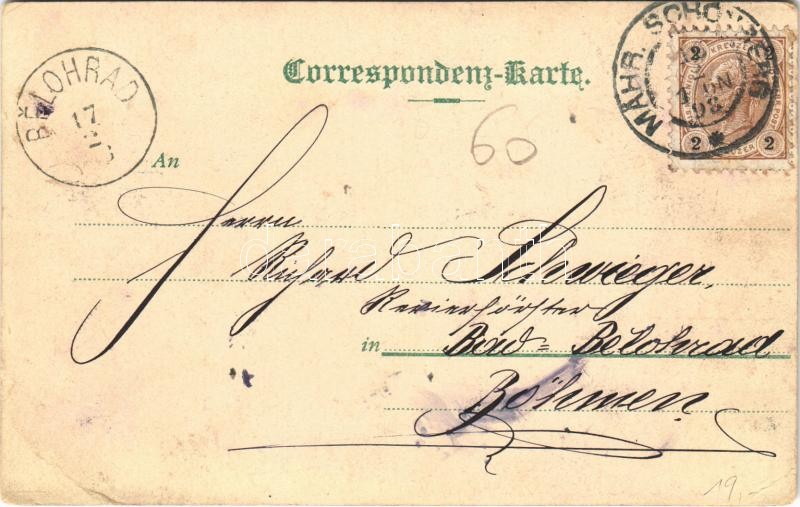 Correspondenz-Karte.
BĚLOHRAD
17
MÄHR. SCHÖNBERG
98
2 KREUZER 2
60
An
Herrn
Richard Schwieger,
Revierförster
in Bad-Belohrad
Böhmen
19,-
darabanth